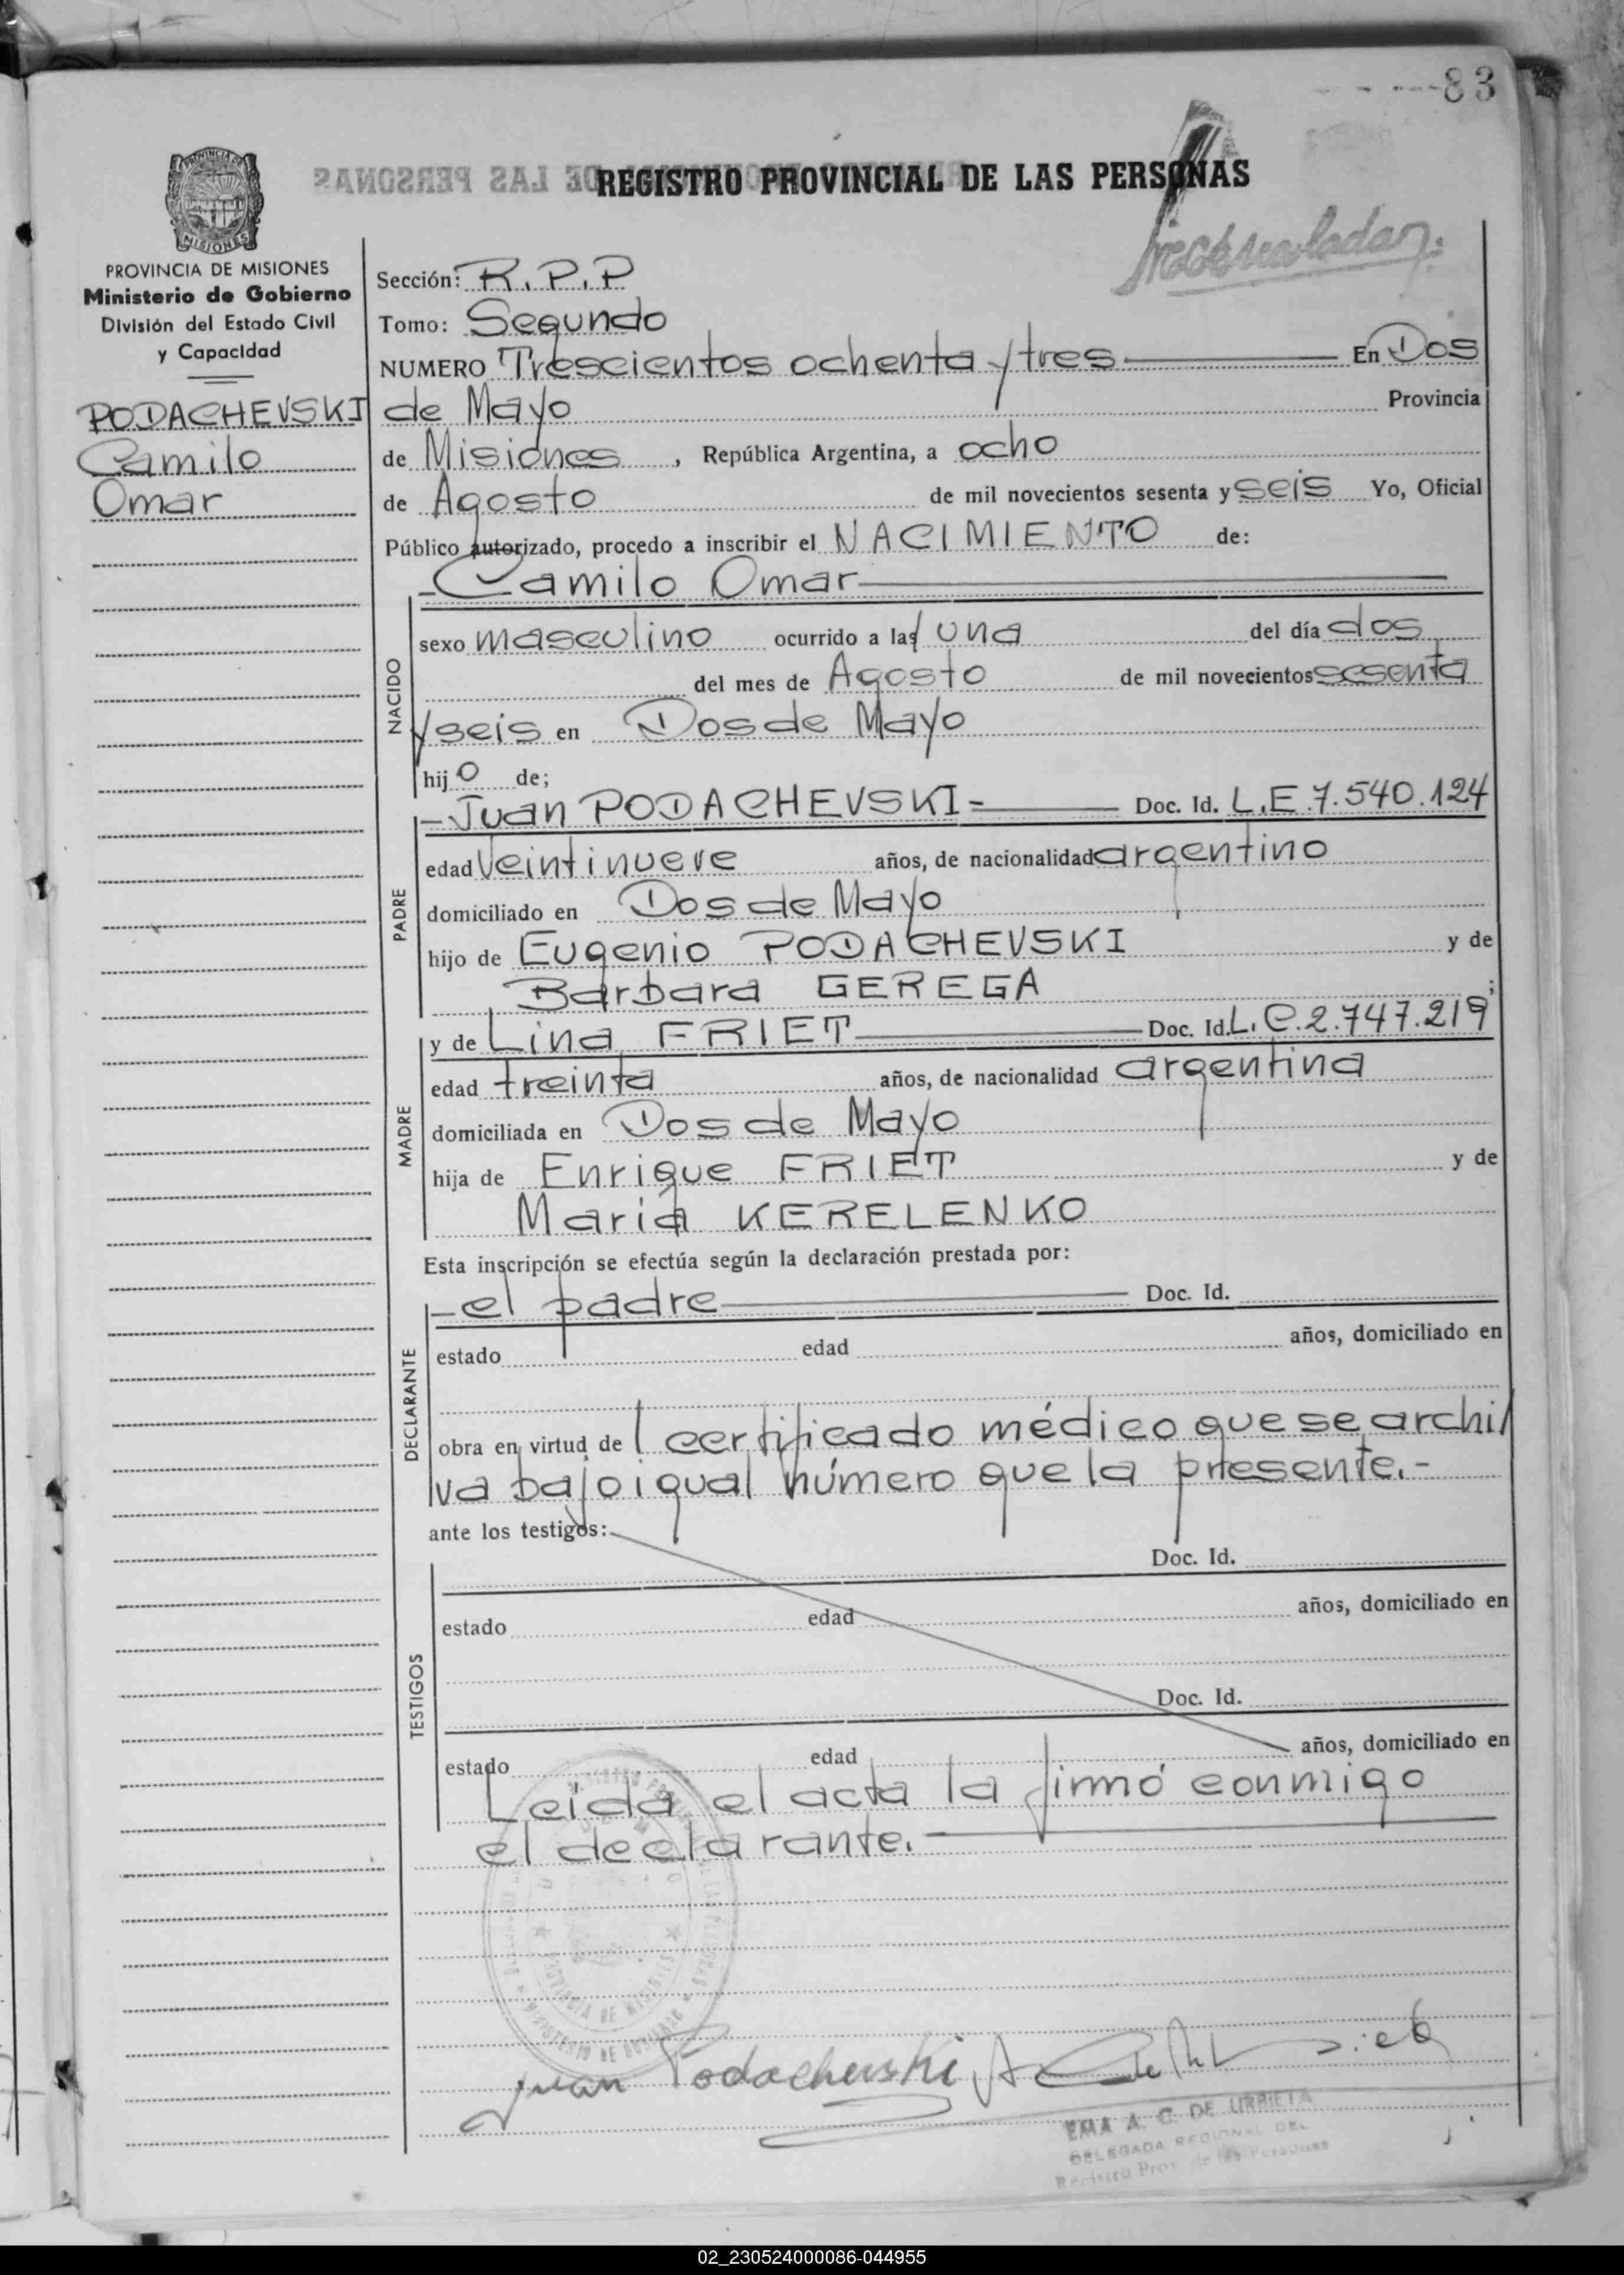 83
REGISTRO PROVINCIAL DE LAS PERSONAS
PROVINCIA DE
MISIONES
PROVINCIA DE MISIONES
Ministerio de Gobierno
División del Estado Civil
y Capacidad
PODACHEVSKI
Camilo
Omar
Sección: R.P.P
Tomo: Segundo
NUMERO Trescientos ochenta y tres En Dos
de Mayo Provincia
de Misiones, República Argentina, a ocho
de Agosto de mil novecientos sesenta y seis Yo, Oficial
Público autorizado, procedo a inscribir el NACIMIENTO de:
- Camilo Omar
NACIDO
sexo masculino ocurrido a las una del día dos
del mes de Agosto de mil novecientos sesenta
y seis en Dos de Mayo
hijo de;
PADRE
- Juan PODACHEVSKI - Doc. Id. L.E 7.540.124
edad veintinueve años, de nacionalidad argentino
domiciliado en Dos de Mayo
hijo de Eugenio PODACHEVSKI y de
Barbara GEREGA ;
MADRE
y de Lina FRIET Doc. Id. L.C.2.747.219
edad treinta años, de nacionalidad argentina
domiciliada en Dos de Mayo
hija de Enrique FRIET y de
Maria KERELENKO
Esta inscripción se efectúa según la declaración prestada por:
DECLARANTE
- el padre Doc. Id.
estado edad años, domiciliado en
obra en virtud del certificado médico que se archi
va bajo igual número que la presente.-
ante los testigos:
TESTIGOS
Doc. Id.
estado edad años, domiciliado en
Doc. Id.
estado edad años, domiciliado en
Leida el acta la firmó conmigo
el declarante.
Juan Podachevski
EMA A. C. DE URBIETA
DELEGADA REGIONAL DEL
Registro Prov. de las Personas
02_230524000086-044955